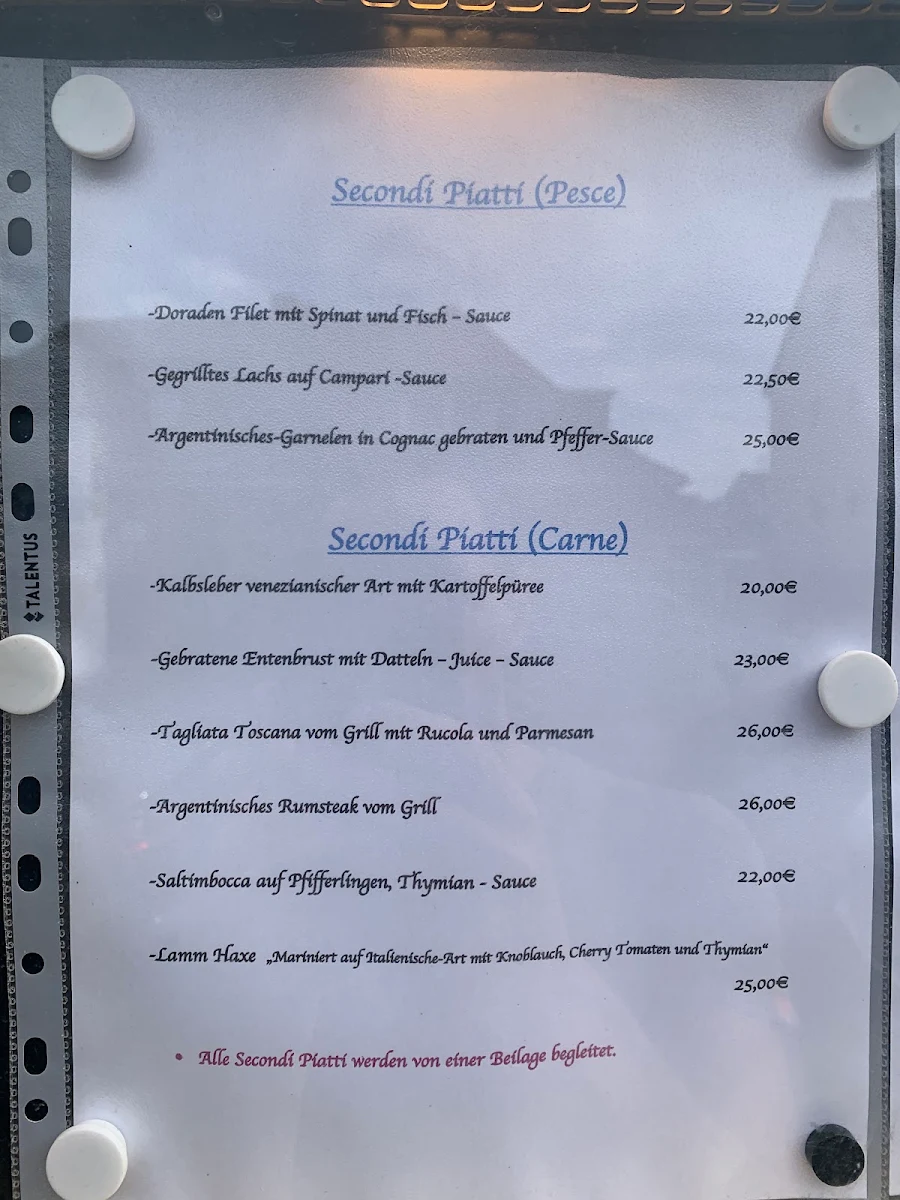 Secondi Piatti (Pesce)
-Doraden Filet mit Spinat und Fisch – Sauce 22,00€
-Gegrilltes Lachs auf Campari -Sauce 22,50€
-Argentinisches-Garnelen in Cognac gebraten und Pfeffer-Sauce 25,00€
Secondi Piatti (Carne)
-Kalbsleber venezianischer Art mit Kartoffelpüree 20,00€
-Gebratene Entenbrust mit Datteln – Juice – Sauce 23,00€
-Tagliata Toscana vom Grill mit Rucola und Parmesan 26,00€
-Argentinisches Rumsteak vom Grill 26,00€
-Saltimbocca auf Pfifferlingen, Thymian - Sauce 22,00€
-Lamm Haxe „Mariniert auf Italienische-Art mit Knoblauch, Cherry Tomaten und Thymian“
25,00€
• Alle Secondi Piatti werden von einer Beilage begleitet.
TALENTUS